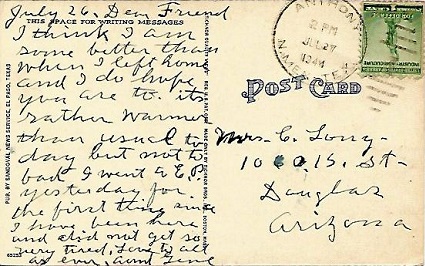 July 26, Dear Friend
THIS SPACE FOR WRITING MESSAGES
I think I am
some better than
when I left home
and I do hope
you are to. its
rather warmer
than usual to
day but not to
bad I went to E.P.
yesterday for
the first thing since
I have been here
and did not get so
very tired, Love to all
as ever, Aunt
PUB. BY SANDOVAL NEWS SERVICE, EL PASO, TEXAS
ANTHONY
2 PM
JUL 27
1944
N.MEX.-TEX.
POST CARD
Mrs. C. Long
1010 15. St.
Douglas
Arizona